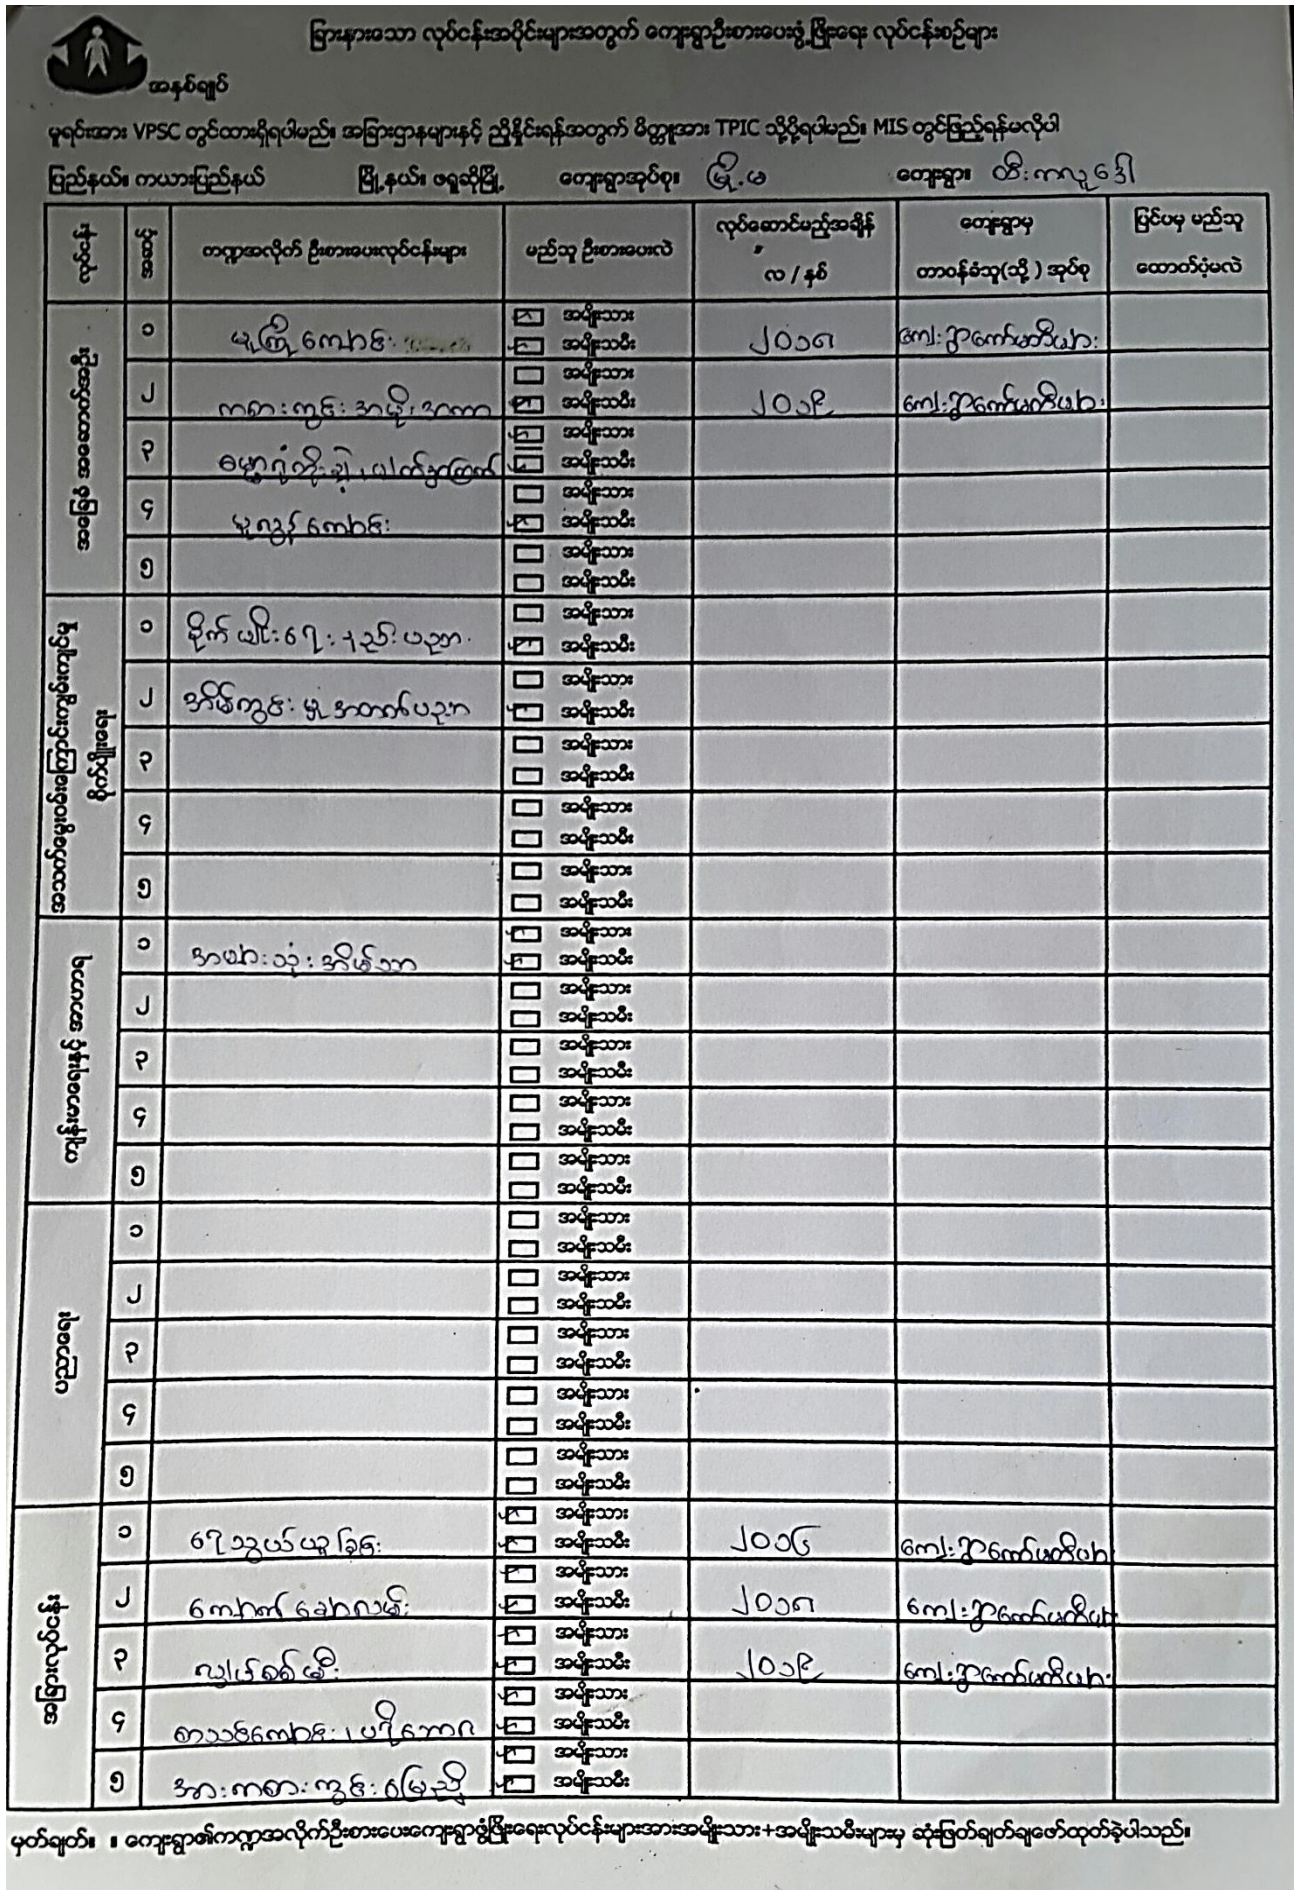 ခြားနားသော လုပ်ငန်းအပိုင်းများအတွက် ကျေးရွာဦးစားပေးဖွံ့ဖြိုးရေး လုပ်ငန်းစဉ်များ
အနှစ်ချုပ်
မူရင်းအား VPSC တွင်ထားရှိရပါမည်။ အခြားဌာနများနှင့် ညှိနှိုင်းရန်အတွက် မိတ္တူအား TPIC သို့ပို့ရပါမည်။ MIS တွင်ဖြည့်ရန်မလိုပါ
ပြည်နယ်။ ကယားပြည်နယ် မြို့နယ်။ ဖရူဆိုမြို့ ကျေးရွာအုပ်စု။ မြို့မ ကျေးရွာ။ ထီးကလူဒေါ
ကဏ္ဍအလိုက် ဦးစားပေးလုပ်ငန်းများ မည်သူ ဦးစားပေးလဲ လုပ်ဆောင်မည့်အချိန် လ / နှစ် ကျေးရွာမှ တာဝန်ခံသူ(သို့) အုပ်စု ပြင်ပမှ မည်သူ ထောက်ပံ့မလဲ
၁ မူကြိုကျောင်း အမျိုးသား အမျိုးသမီး ၂၀၁၈ ကျေးရွာကော်မတီယား
၂ ကစားကွင်း အမိုးအကာ အမျိုးသား အမျိုးသမီး ၂၀၁၉ ကျေးရွာကော်မတီယား
၃ အမျိုးသား အမျိုးသမီး
၄ မူလွန်ကျောင်း အမျိုးသား အမျိုးသမီး
၅ အမျိုးသား အမျိုးသမီး
၁ စိုက်ပျိုးရေးနည်းပညာ အမျိုးသား အမျိုးသမီး
၂ အိမ်တွင်းမှု အတတ်ပညာ အမျိုးသား အမျိုးသမီး
၃ အမျိုးသား အမျိုးသမီး
၄ အမျိုးသား အမျိုးသမီး
၅ အမျိုးသား အမျိုးသမီး
၁ အများသုံးအိမ်သာ အမျိုးသား အမျိုးသမီး
၂ အမျိုးသား အမျိုးသမီး
၃ အမျိုးသား အမျိုးသမီး
၄ အမျိုးသား အမျိုးသမီး
၅ အမျိုးသား အမျိုးသမီး
၁ အမျိုးသား အမျိုးသမီး
၂ အမျိုးသား အမျိုးသမီး
၃ အမျိုးသား အမျိုးသမီး
၄ အမျိုးသား အမျိုးသမီး
၅ အမျိုးသား အမျိုးသမီး
၁ ရေသွယ်ယူခြင်း အမျိုးသား အမျိုးသမီး ၂၀၁၆ ကျေးရွာကော်မတီယား
၂ ကျောက်ချောလမ်း အမျိုးသား အမျိုးသမီး ၂၀၁၈ ကျေးရွာကော်မတီယား
၃ လျှပ်စစ်မီး အမျိုးသား အမျိုးသမီး ၂၀၁၉ ကျေးရွာကော်မတီယား
၄ စာသင်ကျောင်း၊ ပရိဘောဂ အမျိုးသား အမျိုးသမီး
၅ အားကစားကွင်းမြေညှိ အမျိုးသား အမျိုးသမီး
မှတ်ချတ်။ ။ ကျေးရွာ၏ကဏ္ဍအလိုက်ဦးစားပေးကျေးရွာဖွံ့ဖြိုးရေးလုပ်ငန်းများအားအမျိုးသား+အမျိုးသမီးများမှ ဆုံးဖြတ်ချတ်ချဖော်ထုတ်ခဲ့ပါသည်။